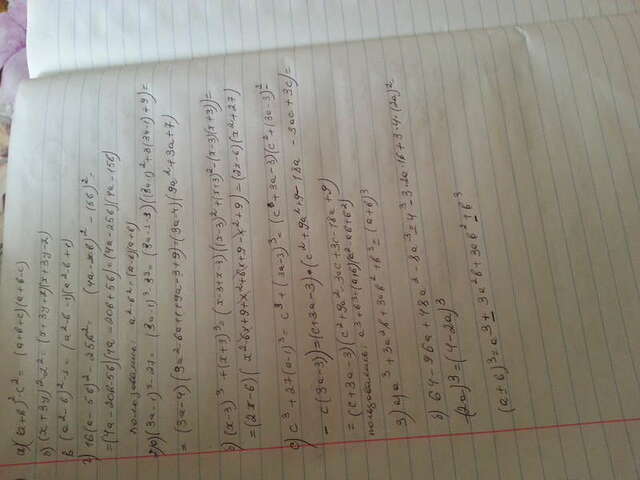 а) (a+b)²-c² = (a+b+c)(a+b-c)
б) (x+3y)²-z² = (x+3y+z)(x+3y-z)
в (a²-b)²-1 = (a²-b-1)(a²-b+1)
г) 16(a-5b)² - 25b² = (4a-20b)² - (5b)² =
=(4a-20b-5b)(4a-20b+5b)=(4a-25b)(4a-15b)
a²-b²=(a-b)(a+b)
2) а) (3a-1)³-27= (3a-1)³-3³= (3a-1-3)((3a-1)²+3(3a-1)+9)=
= (3a-4)(9a²-6a+1+9a-3+9)=(3a-4)(9a²+3a+7)
б) (x-3)³ +(x+3)³= (x-3+x+3)((x-3)²+(x+3)²-(x-3)(x+3))=
=(2x-6)(x²-6x+9+x²+6x+9-x²+9)=(2x-6)(x²+27)
с) c³+27(a-1)³= c³+(3a-3)³= (c+3a-3)(c²+(3a-3)²-
- c(3a-3))=(c+3a-3)•(c²+9a²+9-18a -3ac+3c)=
= (c+3a-3)(c²+9a²-3ac+3c-18a+9)
пользовались: a³+b³=(a+b)(a²-ab+b²)
3) а) a³+3a²b+3ab²+b³=(a+b)³
б) 64-96a+48a²-8a³=4³-3·2a·16+3·4·(2a)²-
-(2a)³=(4-2a)³
(a±b)³=a³±3a²b+3ab²±b³